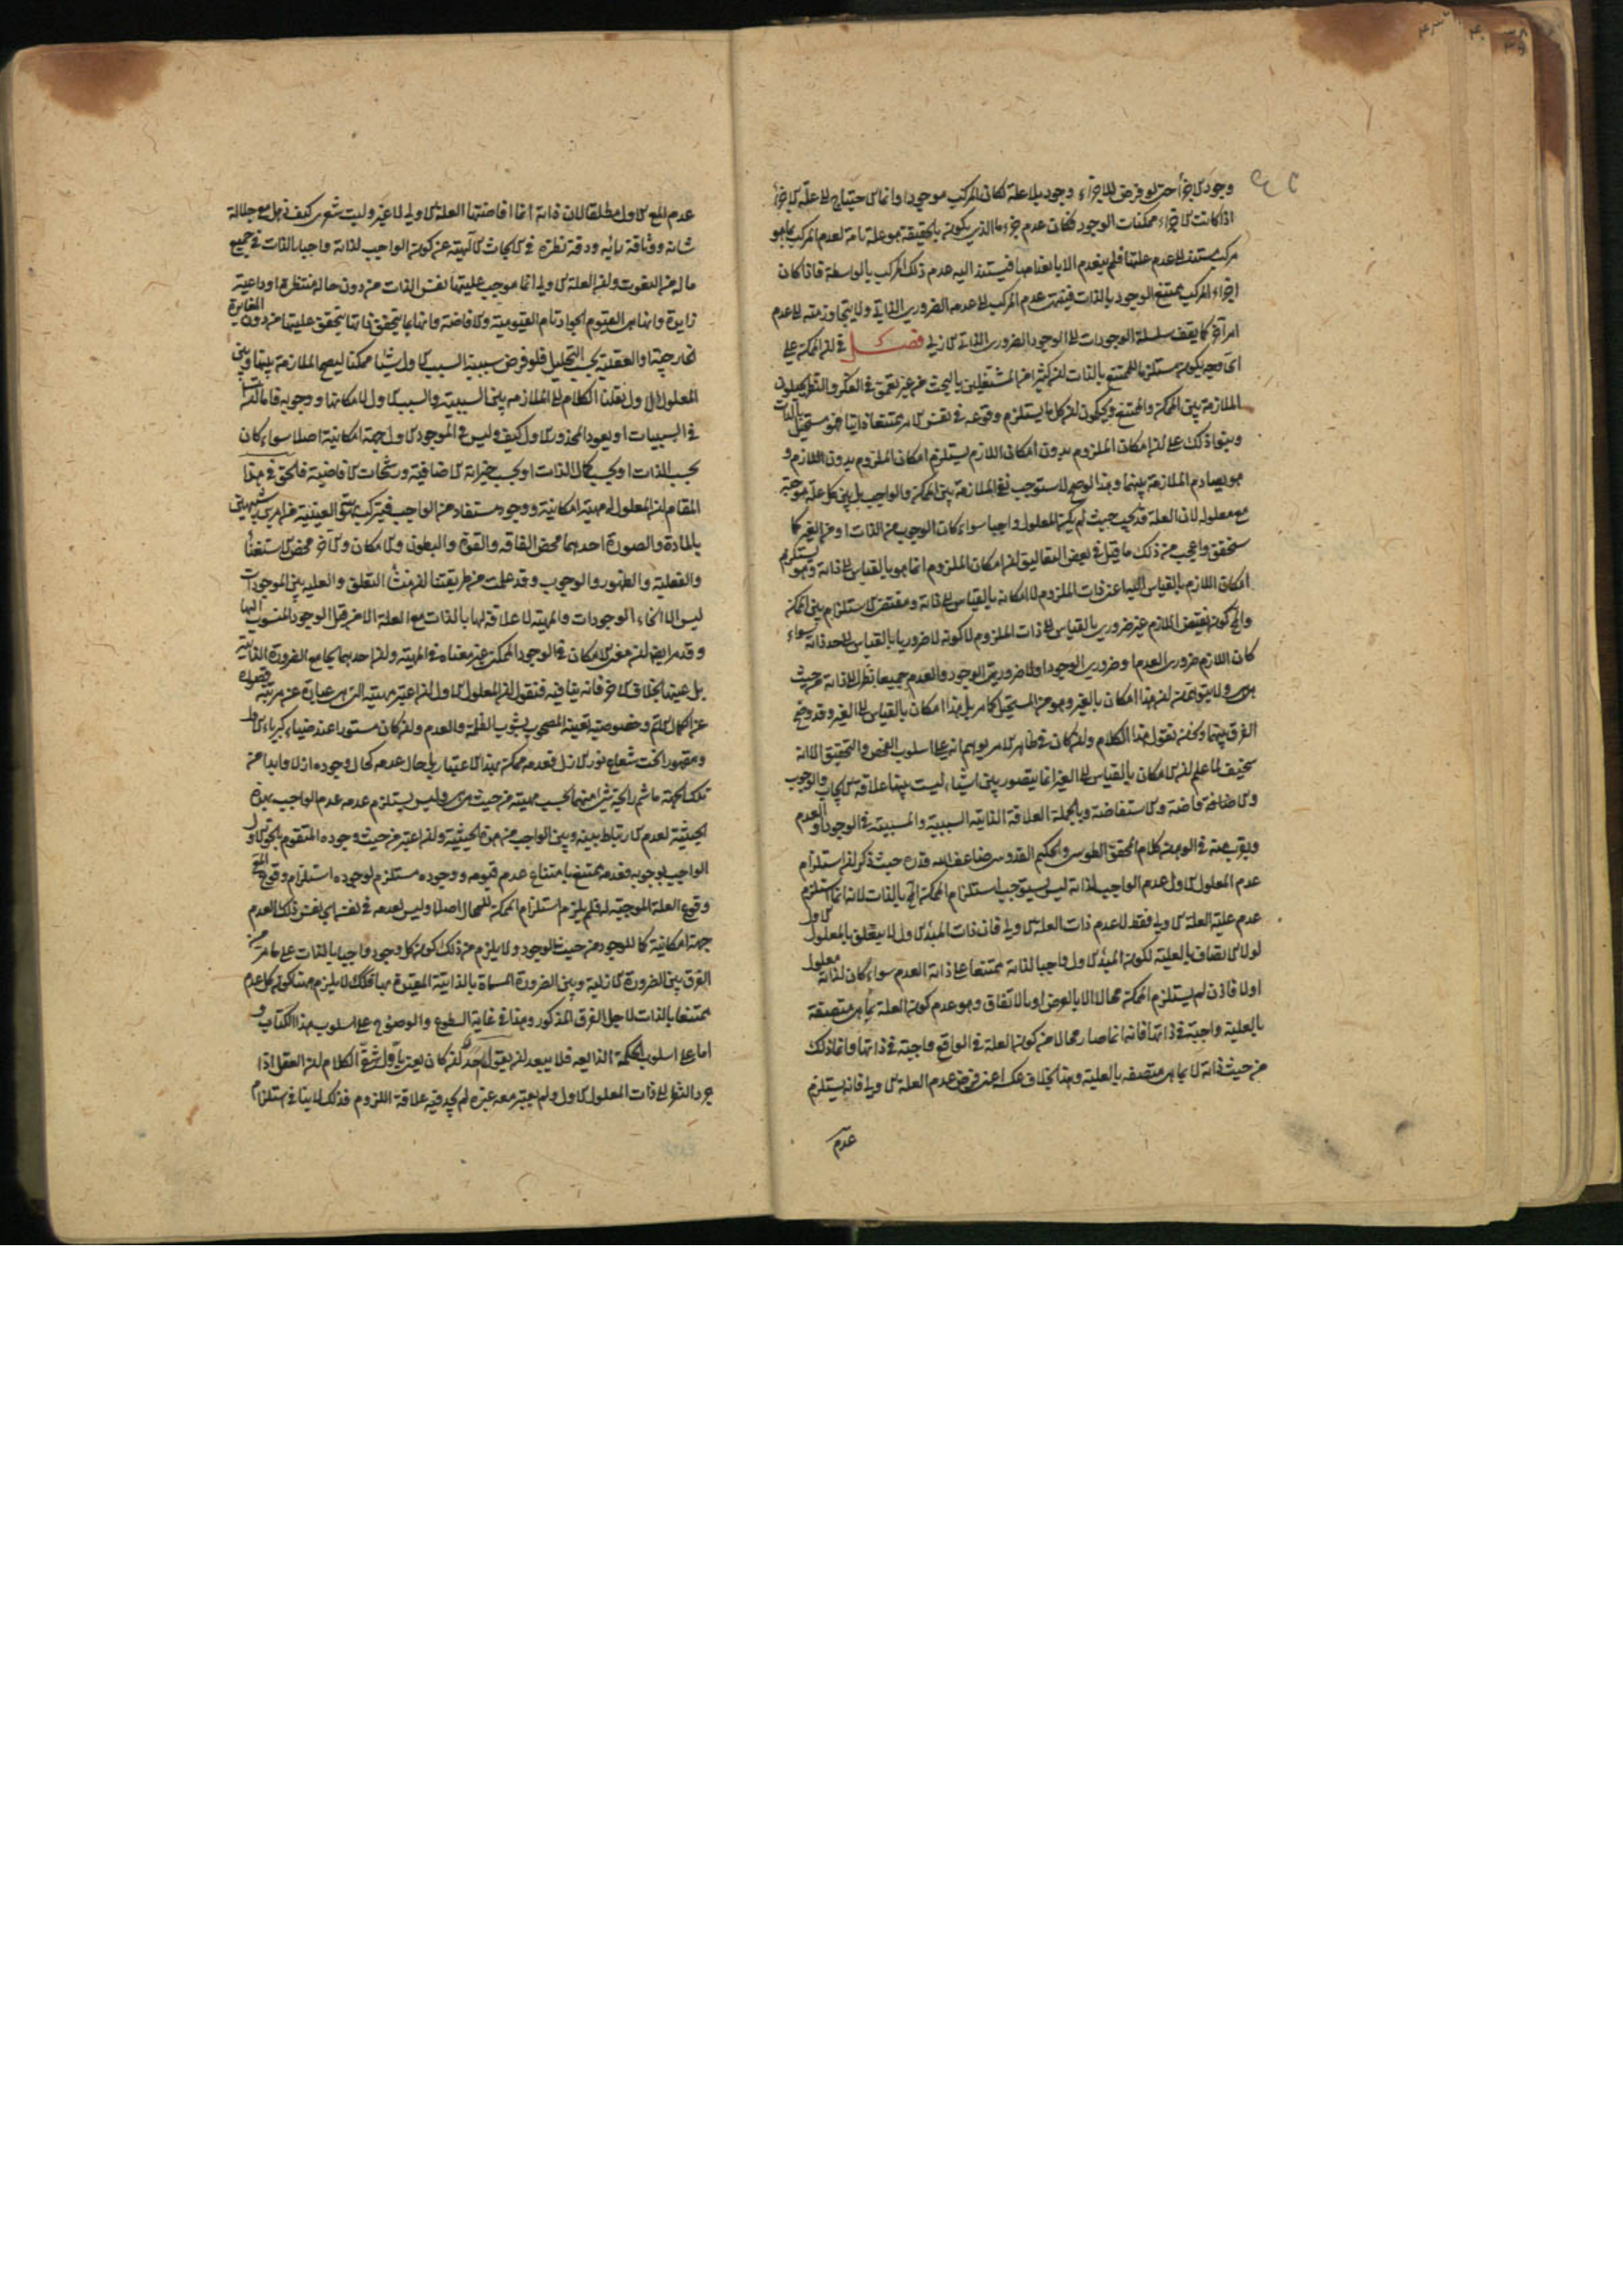 وجود الاجزاء حتى لو فرض للاجزاء وجود بلا علة لكان المركب موجودا وانما الاحتياج الى علة الاجزاء
اذا كانت الاجزاء ممكنات الوجود فكان عدم جزء ما الذي يكون بالحقيقة هو علة تامة لعدم المركب بما هو
مركب مستند الى عدم علتها فلم ينعدم الا بانعدامها فيستند اليه عدم ذلك المركب بالواسطة فاذا كان
اجزاء المركب ممتنع الوجود بالذات فينتهى عدم المركب الى عدمه الضروري الذاتي ولا يتجاوز منه الى عدم
امر آخر كما يقف سلسلة الوجودات الى الوجود الضروري الذاتي الازلي فصل في ان الممكن على
اي وجه يكون مستلزما للممتنع بالذات ان كثيرا من المشتغلين بالبحث من غير تعمق في الفكر والنظر يحيلون
الملازمة بين الممكن والممتنع ويحكمون ان كل ما يستلزم وقوعه في نفس الامر ممتنعا ذاتيا فهو مستحيل بالذات
وبنوا ذلك على ان امكان الملزوم بدون امكان اللازم يستلزم امكان الملزوم بدون اللازم و
هو يصادم الملازمة بينهما وهذا لو صح لاستوجب نفي الملازمة بين الممكن والواجب بل بين كل علة موجبة
مع معلوله لان العلة قد تجب حيث لم يكن المعلول واجبا سواء كان الوجوب من الذات او من الغير كما
ستحقق واعجب من ذلك ما قيل في بعض التعاليق ان امكان الملزوم انما هو بالقياس الى ذاته وهو يستلزم
امكان اللازم بالقياس اليه اعني ذات الملزوم لا امكانه بالقياس الى ذاته ومقتضى الاستلزام بين الممكن
والمحال كون نقيض اللازم غير ضروري بالقياس الى ذات الملزوم لا كونه لا ضروريا بالقياس الى حد ذاته سواء
كان اللازم ضروري العدم او ضروري الوجود او لا ضروري الوجود والعدم جميعا نظرا الى ذاته من حيث
هي هي ولا يتوهمن ان هذا امكان بالغير وهو من المستحيل كما مر بل هذا امكان بالقياس الى الغير وقد وضح
الفرق بينهما ونحن نقول هذا الكلام وان كان في ظاهر الامر يوهم انه على اسلوب الفحص والتحقيق الا انه
سخيف لما علم ان الامكان بالقياس الى الغير انما يتصور بين اشياء ليست بينها علاقة الايجاب والوجوب
والاضافة فاضة والاستفاضة وبالجملة العلاقة الذاتية السببية والمسببية في الوجود او العدم
ويقرب منه في الوهن كلام المحقق الطوسي والحكيم القدوسي ضاعف الله قدره حيث ذكر ان استلزام
عدم المعلول الاول عدم الواجب لذاته ليس يستوجب استلزام الممكن المحال بالذات لانه انما استلزم
عدم علية العلة الاولى فقط لا عدم ذات العلة الاولى فان ذات المبدأ الاول لا يتعلق بالمعلول الاول
لولا الاتصاف بالعلية لكون المبدأ الاول واجبا لذاته ممتنعا على ذاته العدم سواء كان لذاته معلول
اولا فاذن لم يستلزم الممكن محالا الا بالعرض او بالاتفاق وهو عدم كون العلة بما هي متصفة
بالعلية واجبة في ذاتها فانها انما صار محالا من كون العلة في الواقع واجبة في ذاتها وانما ذلك
من حيث ذاته لا بما هي متصفة بالعلية وهذا بخلاف عكسه اعني فرض عدم العلة الاولى فانه يستلزم
عدم
عدم المعلول الاول مطلقا لان ذاته انما افاضتها العلة الاولى لا غير وليت شعري كيف ذهل مع جلالة
شانه ووثاقة رايه ودقة نظره في الابحاث الالهية عن كون الواجب لذاته واجبا بالذات في جميع
ما له من النعوت وان العلة الاولى انما موجب عليتها نفس الذات من دون حالة منتظرة او داعية
زايدة وانها هي القيوم الجواد تام القيومية والافاضة وانها بما يتحقق ذاتها يتحقق عليتها من دون المغايرة
الخارجية او العقلية بحسب التحليل فلو فرض سببية السبب الاول شيئا ممكنا ليصح الملازمة بينها وبين
المعلول الاول نقلنا الكلام الى الملازمة بين السببية والسبب الاول لامكانها ووجوبه فاما التسلسل
في السببيات او يعود المحذور الاول كيف وليس في الموجد الاول جهة امكانية اصلا سواء كان
بحسب الذات او بحسب كمال الذات او بحسب خيراته الاضافية ورشحات الافاضية فالحق في هذا
المقام ان المعلول له مهية امكانية ووجود مستفاد من الواجب فيتركب بهويته العينية من امرين شبيهين
بالمادة والصورة احدهما محض الفاقة والقوة والبطون والامكان والآخر محض الاستغناء
والفعلية والظهور والوجوب وقد علمت من طريقتنا ان منشأ التعلق والعلية بين الموجودات
ليس الا انحاء الوجودات والمهية لا علاقة لها بالذات مع العلة الا من قبل الوجود المنسوب اليها
وقد مر ايضا ان معنى الامكان في الوجود الممكن غير معناه في المهية وان احدهما يجامع الضرورة الذاتية
بل عينها بخلاف الآخر فانه ينافيه فنقول ان المعلول الاول ان اعتبر مهيته التي هي عبارة عن مرتبة قصوره
عن الكمال الاتم وخصوصية تعينه المصحوب بشوب الظلمة والعدم وان كان مستورا عند ضياء كبرياء الاول
ومقهورا تحت شعاع نور الازل فعدمه ممكن بهذا الاعتبار بل حال عدمه كحال وجوده ازلا وابدا من
تلك الجهة ما شم رائحة شيء منهما بحسب مهيته من حيث هي هي وليس يستلزم عدمه عدم الواجب بهذه
الحيثية لعدم الارتباط بينه وبين الواجب من هذه الحيثية وان اعتبر من حيث وجوده المتقوم بالحق الاول
الواجب بوجوبه فعدمه ممتنع بامتناع عدم قيومه ووجوده مستلزم لوجوده استلزام وقوع المعلول
وقوع العلة الموجبة له فلم يلزم استلزام الممكن للمحال اصلا وليس لعدمه في نفسه اي نفس ذلك العدم
جهة امكانية كما للوجود من حيث الوجود ولا يلزم من ذلك كون كل وجود واجبا بالذات على ما مر من
الفرق بين الضرورة الازلية وبين الضرورة المسماة بالذاتية المقيدة بها فكذلك لا يلزم هناك كون كل عدم
ممتنعا بالذات لاجل الفرق المذكور وهذا في غاية السطوع والوضوح على اسلوب هذا الكتاب و
اما على اسلوب الحكمة الذايعة فلا يبعد ان يقول احد ان كان يعني باول شقي الكلام ان العقل اذا
جرد النظر الى ذات المعلول الاول ولم يعتبر معه غيره لم يجد فيه علاقة اللزوم فذلك لا ينافي استلزام